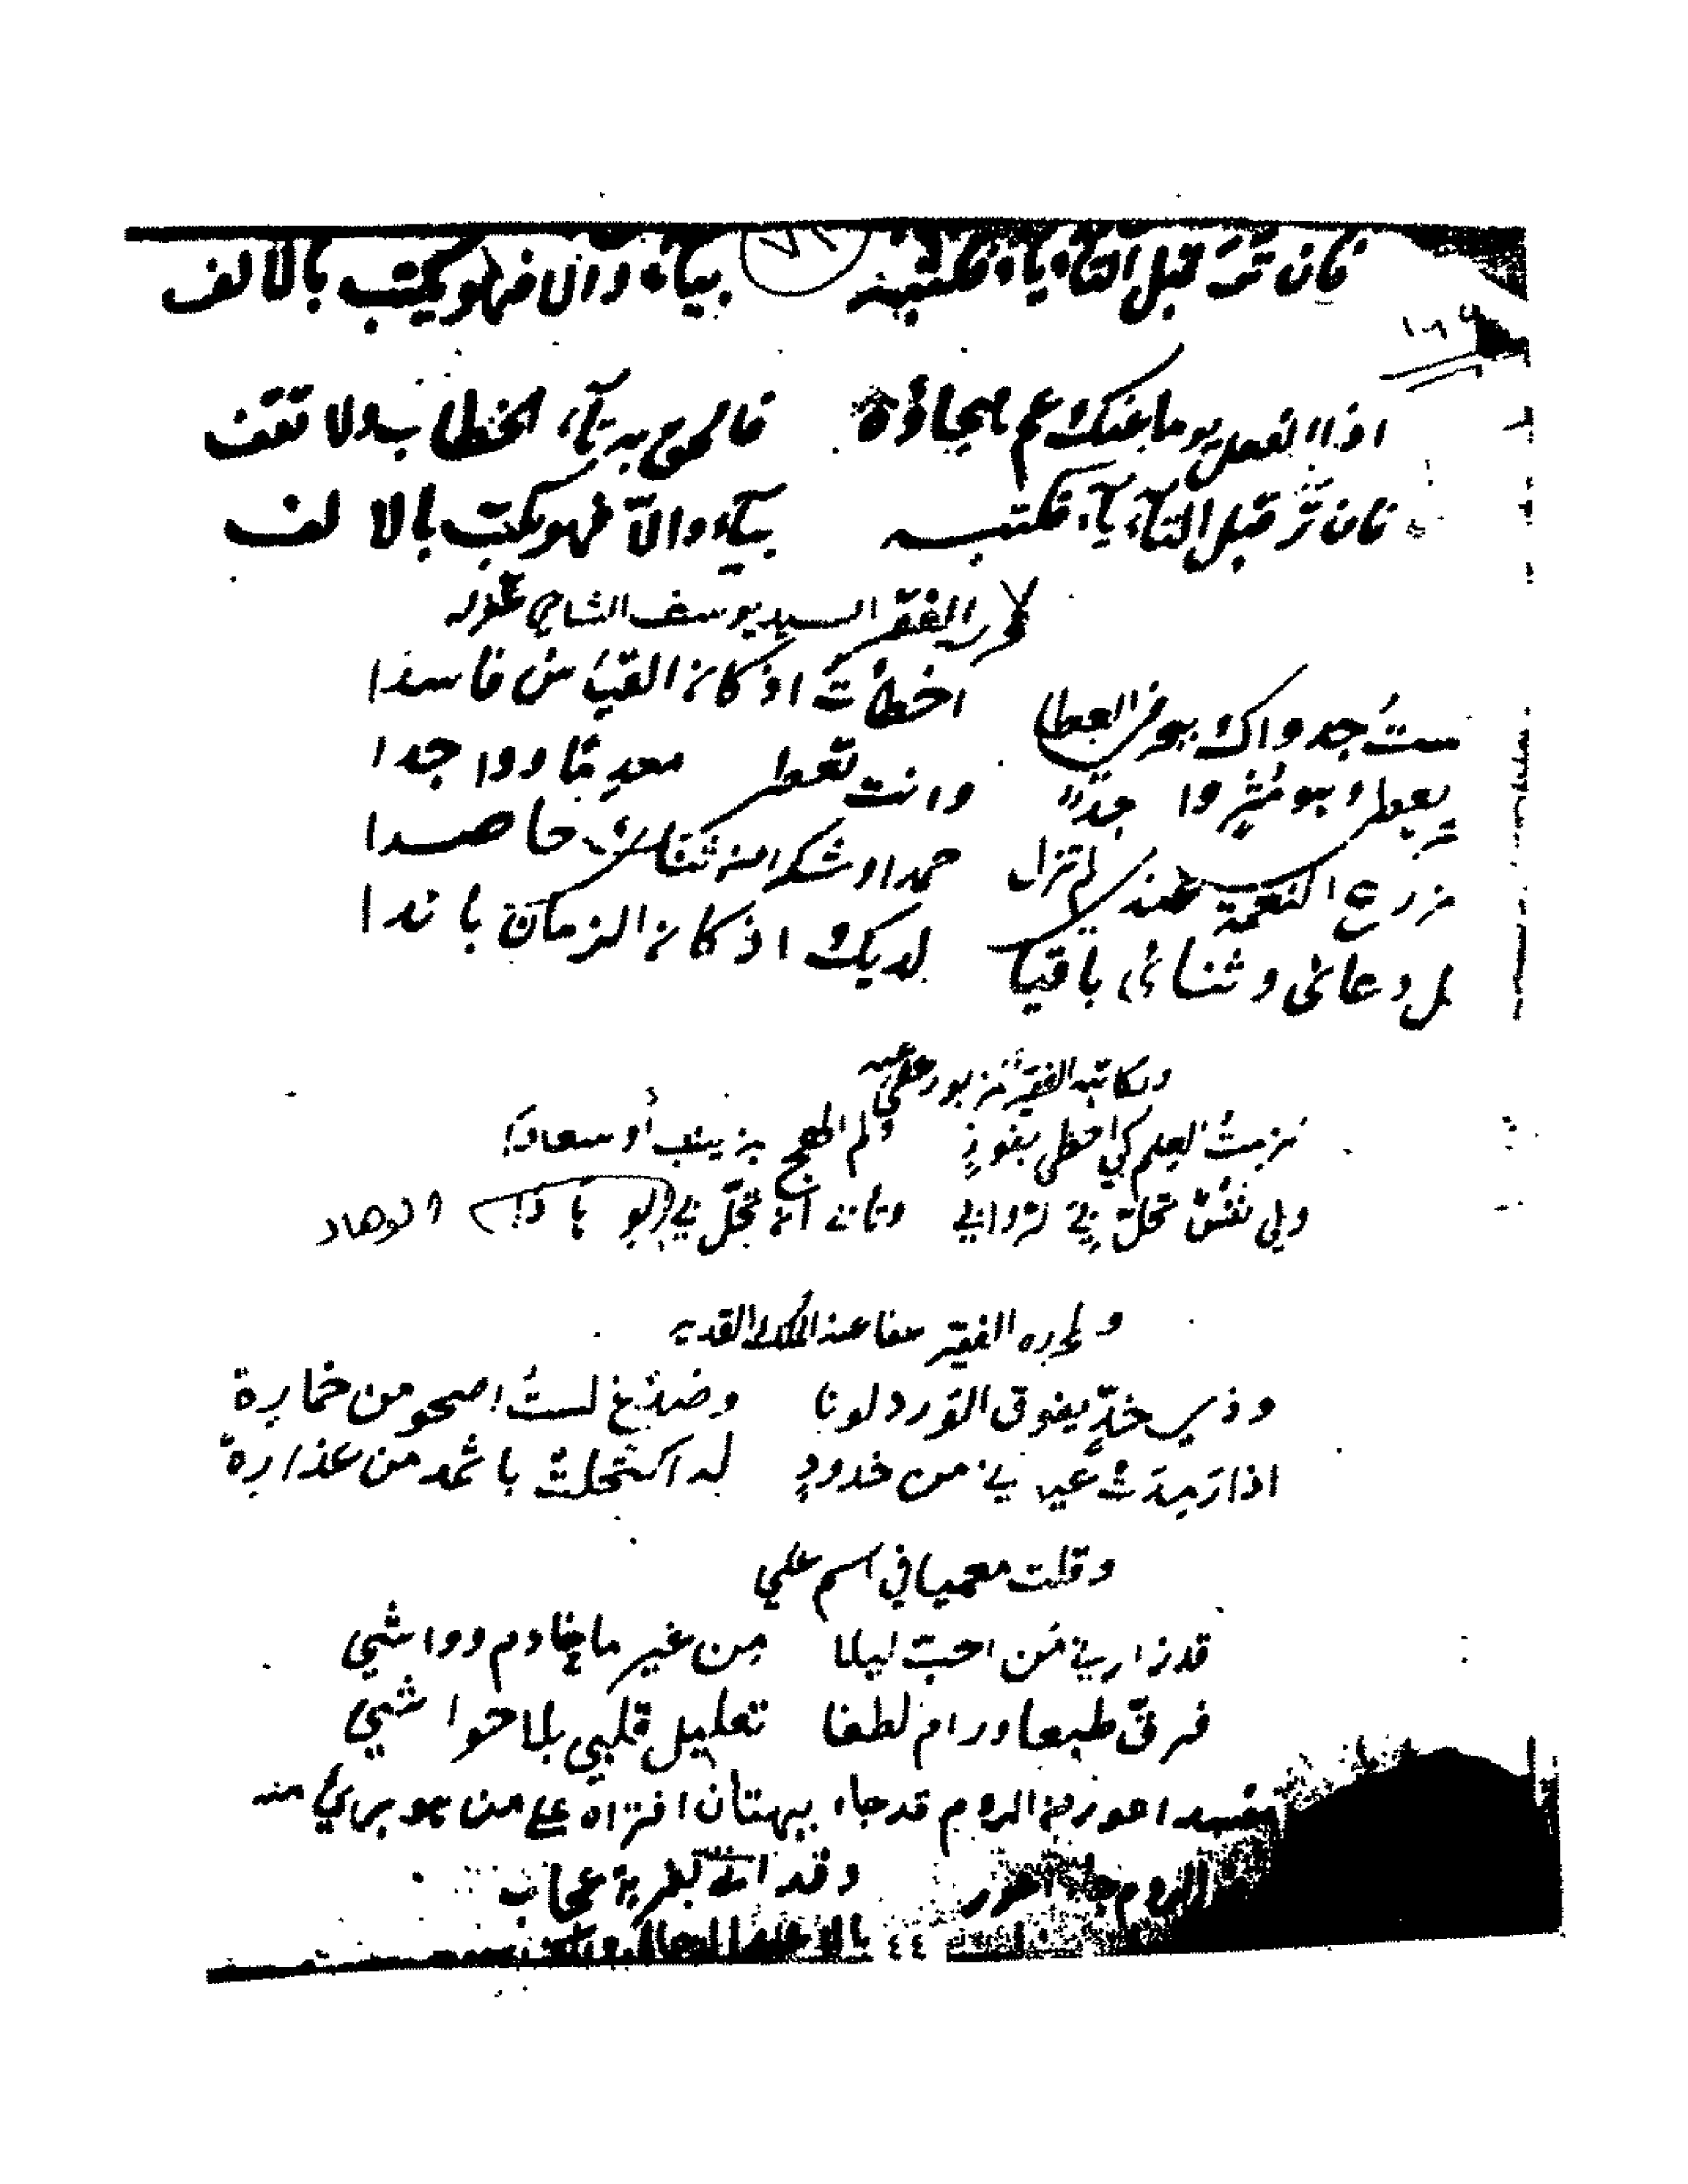 فان تر قبل التاء ياء فكتبه بياء والا فهو يكتب بالالف
اذا الفعل يوما عنك غم هجاؤه فالحق به تآء الخطاب ولا تقف
فان تر قبل التآء يآء فكتبه بيآء والا فهو يكتب بالالف
الفقير السيد يوسف الشامي
جدواك ببحر العطا اخطأت اذ كان القياس فاسدا
يعطي وهو مثر واجد وانت تعطي معدما وواجدا
زرع النعمة لم تزل حمدا وشكرا من ثناك حاصدا
دعائى وثنائى باقيا لديك اذ كان الزمان بائدا
ولكاتبه الفقير المزبور عفى عنه
العلم كي احظى بفوز ولم الهج بزينب أو سعاد
ولي نفس تحل في الروابي وتأبى ان تحل في الوهاد
ولمحرره الفقير عفا عنه الملك القدير
وذي خدٍّ يفوق الورد لونا وصدغ لستُ اصحو من خماره
اذا رمدت عيوني من خدودٍ له اكتحلت باثمد من عذاره
وقلت معميا في اسم علي
قد زارني من احب ليلا من غير ما خادم وواشي
فرق طبعا ورام لطفا تعليل قلبي بلا حواشي
اعور من الروم قد جاء ببهتان افتراه على من هو بريئ منه
الروم جاء اعور وقد